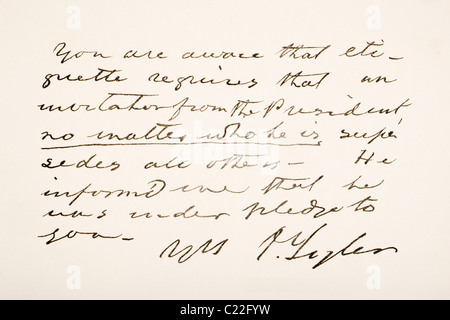 You are aware that eti-
quette requires that an
invitation from the President
no matter who he is super
sedes all others - He
informed me that he
was under pledge to
you -
Yrs J. Tyler
alamy
Image ID: C22FYW
www.alamy.com